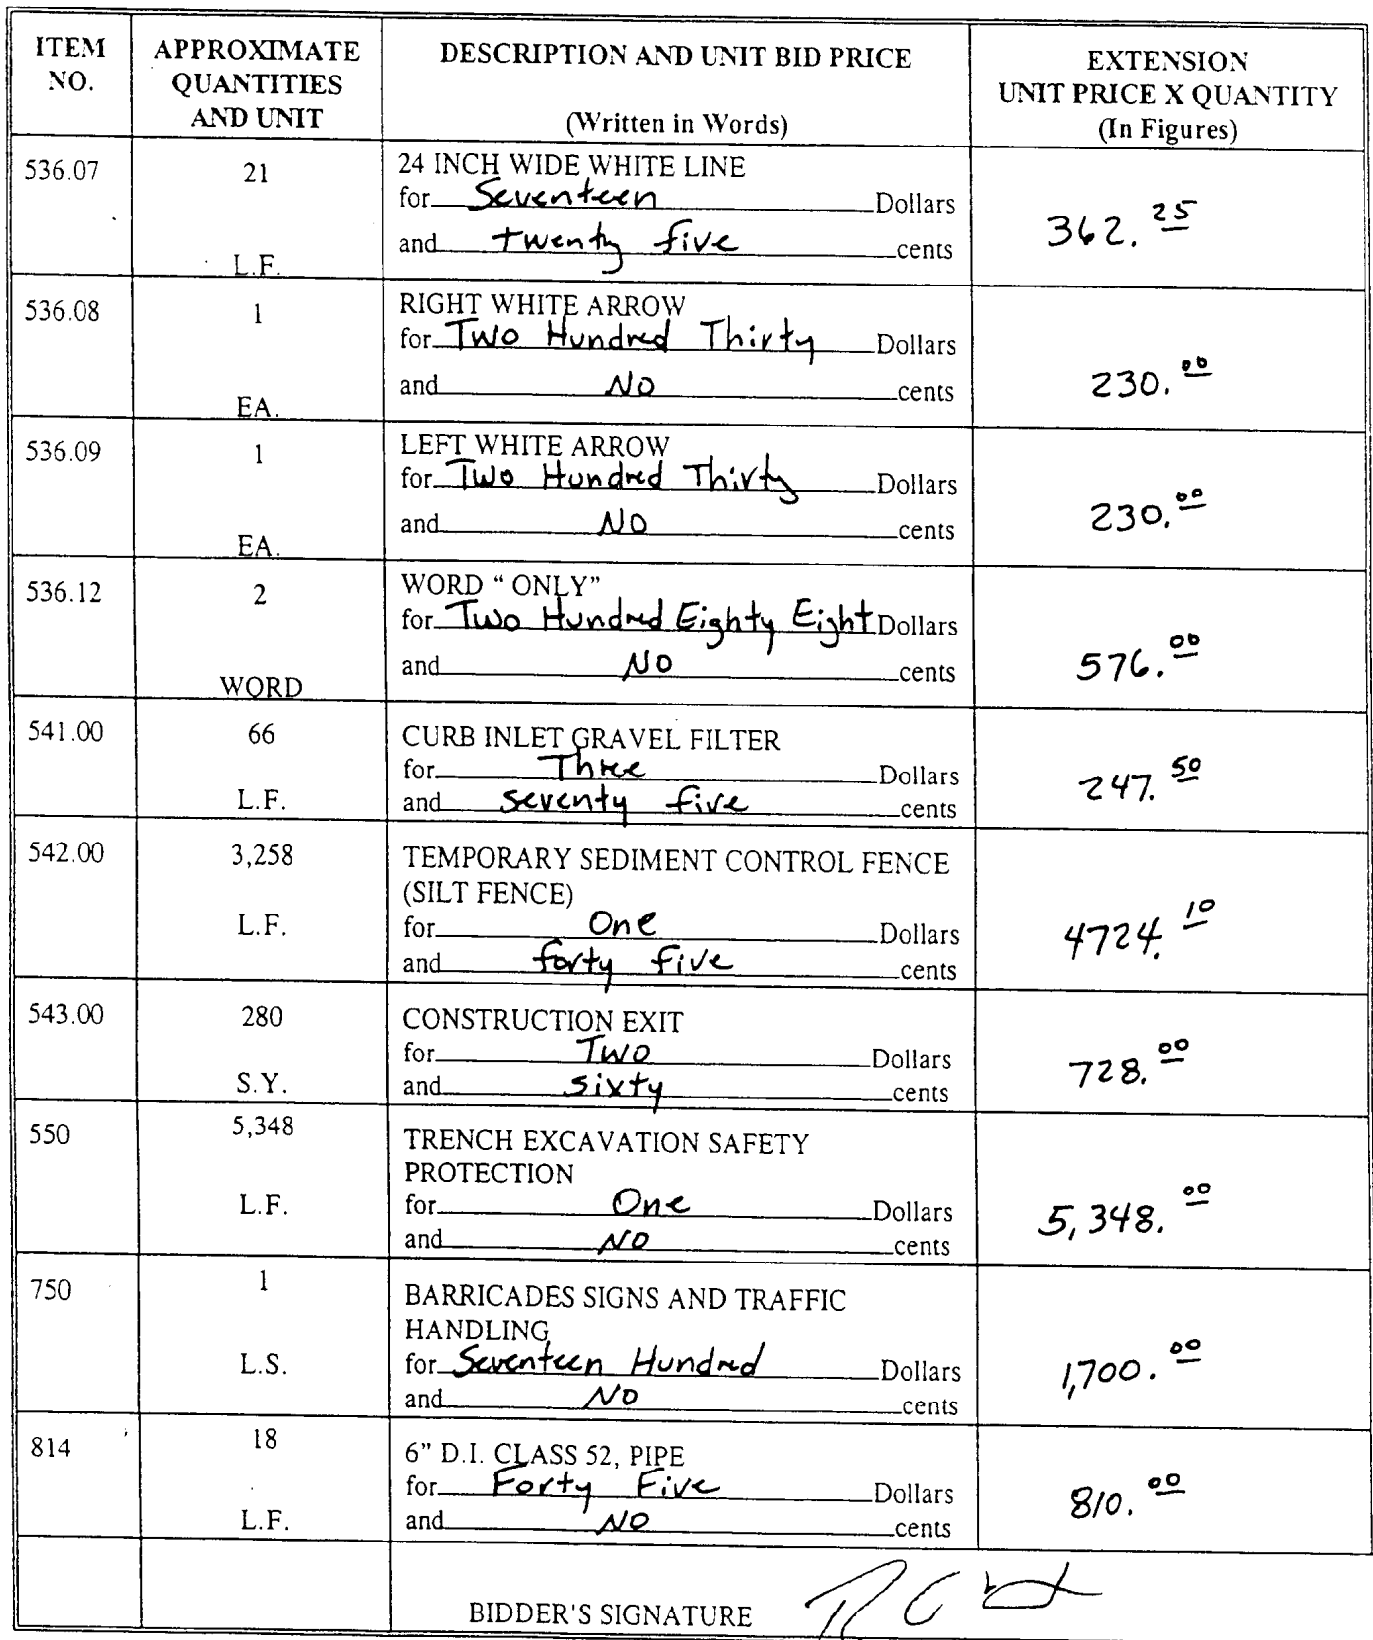 ITEM NO. APPROXIMATE QUANTITIES AND UNIT DESCRIPTION AND UNIT BID PRICE (Written in Words) EXTENSION UNIT PRICE X QUANTITY (In Figures)
536.07 21 24 INCH WIDE WHITE LINE
for Seventeen Dollars
and twenty five cents 362.25
L.F.
536.08 1 RIGHT WHITE ARROW
for Two Hundred Thirty Dollars
and No cents 230.00
EA.
536.09 1 LEFT WHITE ARROW
for Two Hundred Thirty Dollars
and No cents 230.00
EA.
536.12 2 WORD “ ONLY”
for Two Hundred Eighty Eight Dollars
and No cents 576.00
WORD
541.00 66 CURB INLET GRAVEL FILTER
for Three Dollars
L.F. and seventy five cents 247.50
542.00 3,258 TEMPORARY SEDIMENT CONTROL FENCE
(SILT FENCE)
L.F. for One Dollars 4724.10
and forty five cents
543.00 280 CONSTRUCTION EXIT
for Two Dollars
S.Y. and sixty cents 728.00
550 5,348 TRENCH EXCAVATION SAFETY
PROTECTION
L.F. for One Dollars 5,348.00
and No cents
750 1 BARRICADES SIGNS AND TRAFFIC
HANDLING
L.S. for Seventeen Hundred Dollars 1,700.00
and No cents
814 18 6” D.I. CLASS 52, PIPE
for Forty Five Dollars 810.00
L.F. and No cents
BIDDER'S SIGNATURE